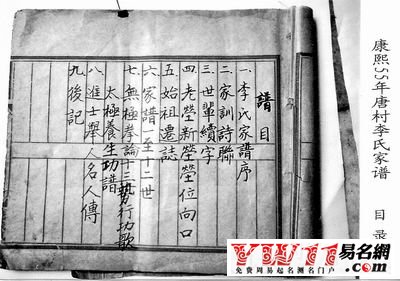 康熙55年唐村李氏家谱 目录
譜目
一李氏家譜序
二家訓詩聯
三世輩續字
四老塋新塋塋位向口
五始祖遷誌
六家譜一至十二世
七無極拳論十三勢行功歌
太極養生功譜
八進士舉人名人傳
九後記
易名網
.com
免费周易起名测名门户